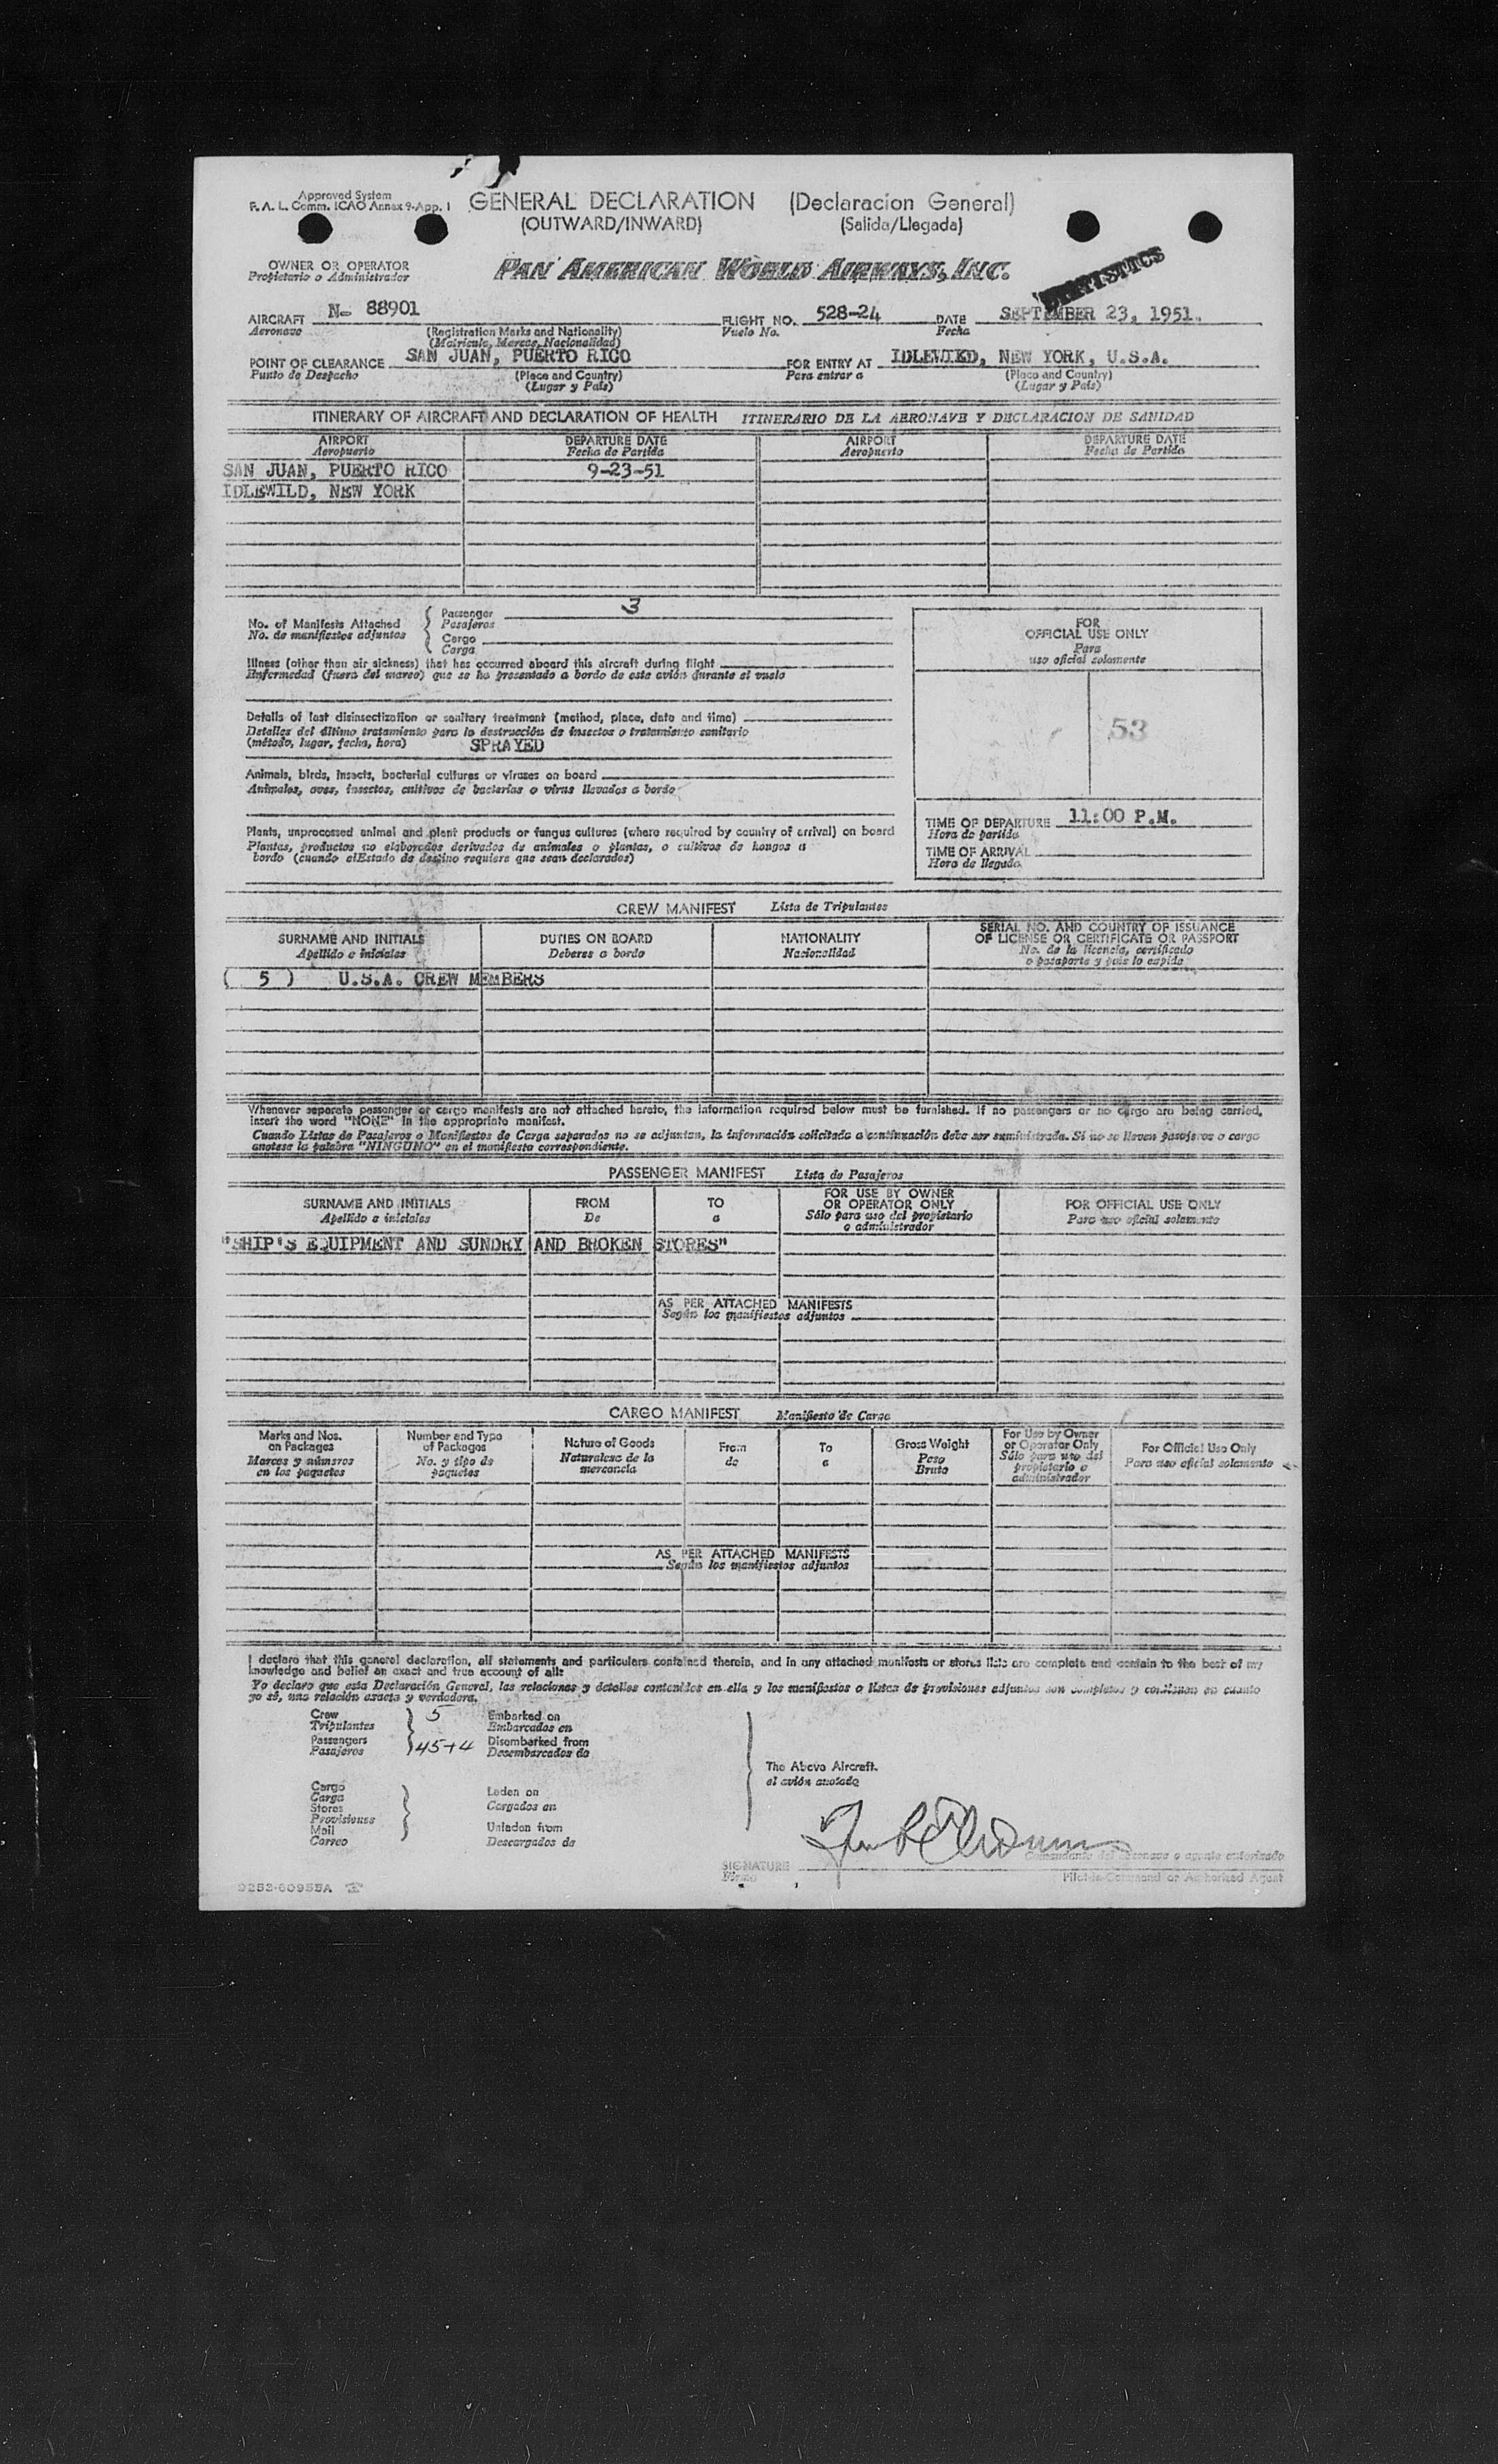 Approved System
F. A. L. Comm. ICAO Annex 9-App. 1
GENERAL DECLARATION (Declaracion General)
(OUTWARD/INWARD) (Salida/Llegada)
OWNER OR OPERATOR
Propietario o Administrador
PAN AMERICAN WORLD AIRWAYS, INC.
STATISTICS
AIRCRAFT N- 88901 FLIGHT NO. 528-24 DATE SEPTEMBER 23, 1951.
Aeronave (Registration Marks and Nationality) Vuelo No. Fecha
(Matricula, Marcas, Nacionalidad)
POINT OF CLEARANCE SAN JUAN, PUERTO RICO FOR ENTRY AT IDLEWIED, NEW YORK, U.S.A.
Punto de Despacho (Place and Country) Para entrar a (Place and Country)
(Lugar y País) (Lugar y País)
ITINERARY OF AIRCRAFT AND DECLARATION OF HEALTH ITINERARIO DE LA AERONAVE Y DECLARACION DE SANIDAD
AIRPORT DEPARTURE DATE AIRPORT DEPARTURE DATE
Aeropuerto Fecha de Partida Aeropuerto Fecha de Partida
SAN JUAN, PUERTO RICO 9-23-51
IDLEWILD, NEW YORK
No. of Manifests Attached
No. de manifiestos adjuntos
Passenger 3
Pasajeros
Cargo
Carga
Illness (other than air sickness) that has occurred aboard this aircraft during flight
Enfermedad (fuera del mareo) que se ha presentado a bordo de este avión durante el vuelo
Details of last disinsectization or sanitary treatment (method, place, date and time)
Detalles del último tratamiento para la destrucción de insectos o tratamiento sanitario
(método, lugar, fecha, hora) SPRAYED
Animals, birds, insects, bacterial cultures or viruses on board
Animales, aves, insectos, cultivos de bacterias o virus llevados a bordo
Plants, unprocessed animal and plant products or fungus cultures (where required by country of arrival) on board
Plantas, productos no elaborados derivados de animales o plantas, o cultivos de hongos a
bordo (cuando elEstado de destino requiera que sean declarados)
FOR
OFFICIAL USE ONLY
Para
uso oficial solamente
53
TIME OF DEPARTURE 11:00 P.M.
Hora de partida
TIME OF ARRIVAL
Hora de llegada
CREW MANIFEST Lista de Tripulantes
SURNAME AND INITIALS DUTIES ON BOARD NATIONALITY SERIAL NO. AND COUNTRY OF ISSUANCE
OF LICENSE OR CERTIFICATE OR PASSPORT
Apellido e iniciales Deberes a bordo Nacionalidad No. de la licencia, certificado
o pasaporte y país lo expide
( 5 ) U.S.A. CREW MEMBERS
Whenever separate passenger or cargo manifests are not attached hereto, the information required below must be furnished. If no passengers or no cargo are being carried,
insert the word "NONE" in the appropriate manifest.
Cuando Listas de Pasajeros o Manifiestos de Carga separados no se adjuntan, la información solicitada a continuación debe ser suministrada. Si no se llevan pasajeros o carga
anotese la palabra "NINGUNO" en el manifiesto correspondiente.
PASSENGER MANIFEST Lista de Pasajeros
SURNAME AND INITIALS FROM TO FOR USE BY OWNER
OR OPERATOR ONLY FOR OFFICIAL USE ONLY
Apellido e iniciales De a Sólo para uso del propietario
o administrador Para uso oficial solamente
"SHIP'S EQUIPMENT AND SUNDRY AND BROKEN STORES"
AS PER ATTACHED MANIFESTS
Según los manifiestos adjuntos
CARGO MANIFEST Manifiesto de Carga
Marks and Nos.
on Packages
Marcas y números
en los paquetes
Number and Type
of Packages
No. y tipo de
paquetes
Nature of Goods
Naturaleza de la
mercancia
From
de
To
a
Gross Weight
Peso
Bruto
For Use by Owner
or Operator Only
Sólo para uso del
propietario o
administrador
For Official Use Only
Para uso oficial solamente
AS PER ATTACHED MANIFESTS
Según los manifiestos adjuntos
I declare that this general declaration, all statements and particulars contained therein, and in any attached manifests or stores lists are complete and contain to the best of my
knowledge and belief an exact and true account of all:
Yo declaro que esta Declaración General, las relaciones y detalles contenidos en ella y los manifiestos o listas de provisiones adjuntos son completos y contienen en cuanto
yo sé, una relación exacta y verdadera.
Crew 5 Embarked on
Tripulantes Embarcados en
Passengers 45+4 Disembarked from
Pasajeros Desembarcados de
The Above Aircraft.
el avión anotado
Cargo
Carga
Stores
Provisiones
Mail
Correo
Laden on
Cargados en
Unladen from
Descargados de
SIGNATURE
Firma
Comandante del aeronave o agente autorizado
Pilot-in-Command or Authorized Agent